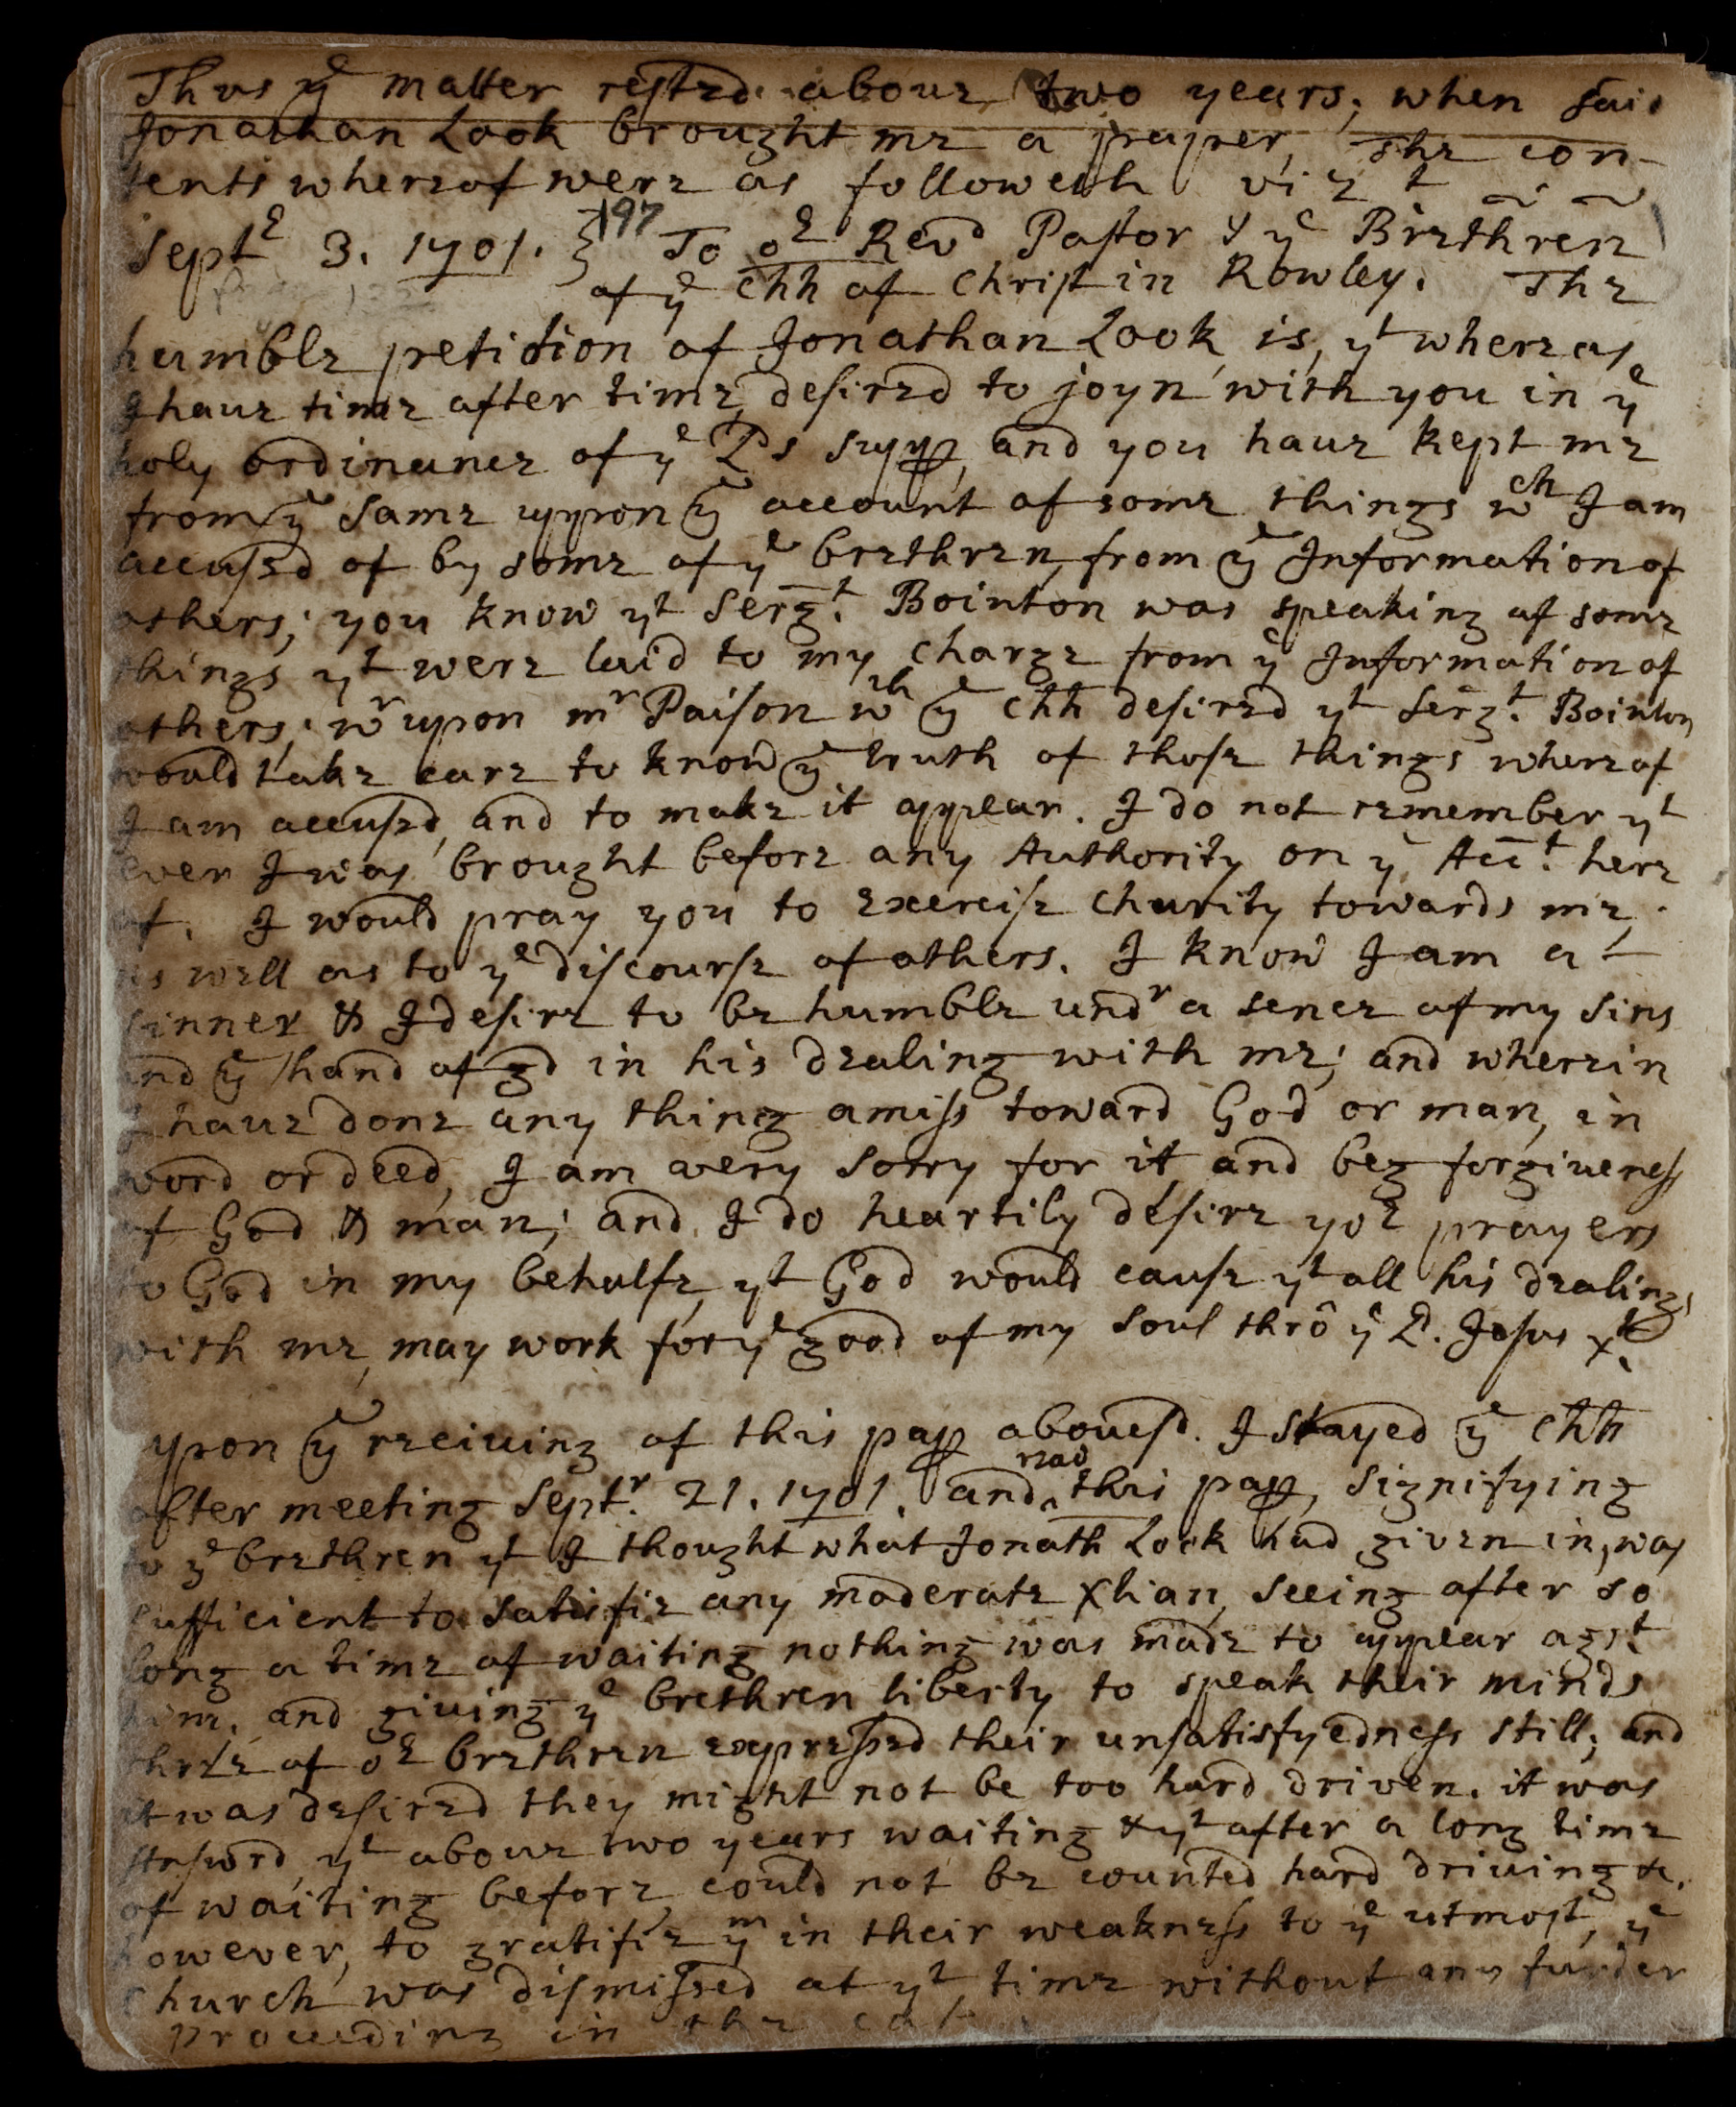 Thus yͤ matter rested about two years, when said
Jonathan Look brought me a paper, The con-
tents whereof were as followeth vizᵗ
Septᵉ 3. 1701. } 197 To oʳ Revᵈ Pastor & yᵉ Brethren
of yᵉ chh of Christ in Rowley. The
humble petition of Jonathan Look is, yᵗ whereas
I haue time after time, desired to joyn with you in yᵉ
holy ordinance of yᵉ Lds supp, and you haue kept me
from yᵉ same uppon yᵉ account of some things wᶜʰ I am
accused of by some of yᵉ brethren, from yᵉ Information of
others; you know yᵗ Sergᵗ. Bointon was speaking of some
things yᵗ were laid to my charge from yᵉ Information of
others; wʳupon mʳ Paison wᵗʰ yᵉ chh desired yᵗ Sergᵗ. Bointon
would take care to know yᵉ truth of those things whereof
I am accused, and to make it appear. I do not remember yᵗ
ever I was brought before any Authority on yᵉ Accᵗ. here
of. I would pray you to exercise charity towards me,
as well as to yᵉ discourse of others. I know I am a
sinner & I desire to be humble undʳ a sence of my sins
and yᵉ hand of gd in his dealing with me; and wherein
I haue done any thing amiss toward God or man, in
word or deed, I am very sorry for it, and beg forgiueness
of God & man; and I do heartily desire yoʳ prayers
to God in my behalfe, yᵗ God would cause yᵗ all his dealings
with me, may work for yᵉ good of my soul thrô yᵉ Ld. Jesus xᵗ.
upon yᵉ receiuing of this pap abouesd. I stayed yᵉ chh
after meeting Septʳ. 21. 1701. and ^read this pap, signifying
to yᵉ brethren yᵗ I thought what Jonath Look had given in, was
sufficient to satisfie any moderate xtian, seeing after so
long a time of waiting nothing was made to appear agsᵗ
him. and giuing yᵉ brethren liberty to speak their minds
three of oʳ brethren expressed their unsatisfyedness still; and
it was desired they might not be too hard driven. it was
Answrd, yᵗ aboue two years waiting & yᵗ after a long time
of waiting before, could not be counted hard driuing &.
however, to gratifie yᵐ in their weakness to yᵉ utmost, yᵉ
church was dismissed at yᵗ time without any furder
proceeding in the